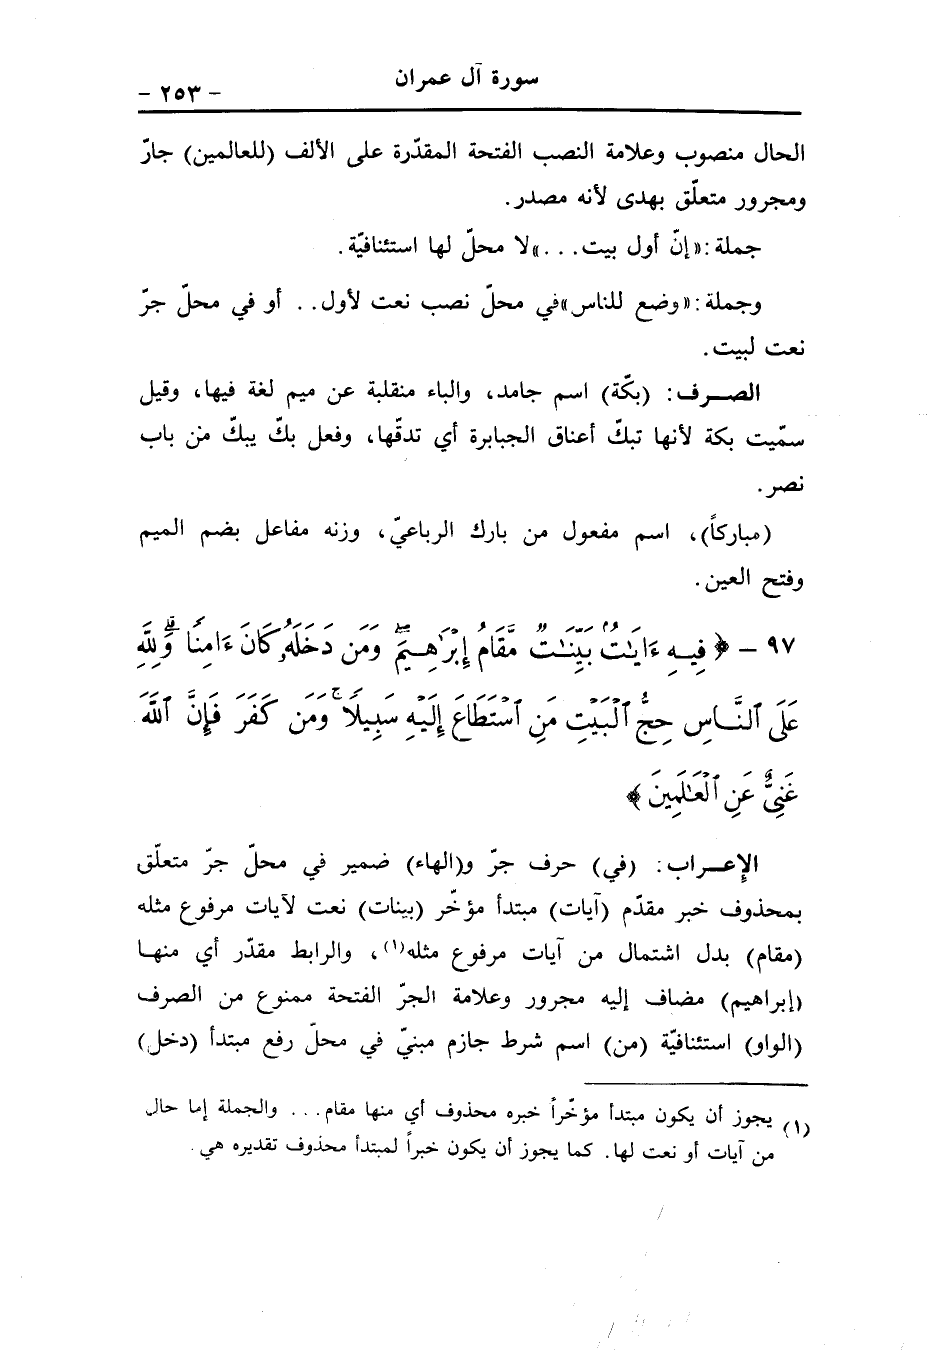 سورة آل عمران
- ٢٥٣ -
الحال منصوب وعلامة النصب الفتحة المقدّرة على الألف (للعالمين) جارّ
ومجرور متعلّق بهدى لأنه مصدر.
جملة: «إنّ أول بيت...» لا محلّ لها استئنافيّة.
وجملة: «وضع للناس» في محلّ نصب نعت لأول.. أو في محلّ جرّ
نعت لبيت.
الصرف: (بكّة) اسم جامد، والباء منقلبة عن ميم لغة فيها، وقيل
سمّيت بكة لأنها تبكّ أعناق الجبابرة أي تدقّها، وفعل بكّ يبكّ من باب
نصر.
(مباركاً)، اسم مفعول من بارك الرباعيّ، وزنه مفاعل بضم الميم
وفتح العين.
٩٧ - ﴿ فِيهِ ءَايَٰتٌۢ بَيِّنَٰتٌ مَّقَامُ إِبْرَٰهِيمَ ۖ وَمَن دَخَلَهُۥ كَانَ ءَامِنًا ۗ وَلِلَّهِ
عَلَى ٱلنَّاسِ حِجُّ ٱلْبَيْتِ مَنِ ٱسْتَطَاعَ إِلَيْهِ سَبِيلًا ۚ وَمَن كَفَرَ فَإِنَّ ٱللَّهَ
غَنِىٌّ عَنِ ٱلْعَٰلَمِينَ ﴾
الإعراب: (في) حرف جرّ و(الهاء) ضمير في محلّ جرّ متعلّق
بمحذوف خبر مقدّم (آيات) مبتدأ مؤخّر (بينات) نعت لآيات مرفوع مثله
(مقام) بدل اشتمال من آيات مرفوع مثله(١)، والرابط مقدّر أي منها
(إبراهيم) مضاف إليه مجرور وعلامة الجرّ الفتحة ممنوع من الصرف
(الواو) استئنافيّة (من) اسم شرط جازم مبنيّ في محلّ رفع مبتدأ (دخل)
(١) يجوز أن يكون مبتدأ مؤخّراً خبره محذوف أي منها مقام... والجملة إما حال
من آيات أو نعت لها. كما يجوز أن يكون خبراً لمبتدأ محذوف تقديره هي.